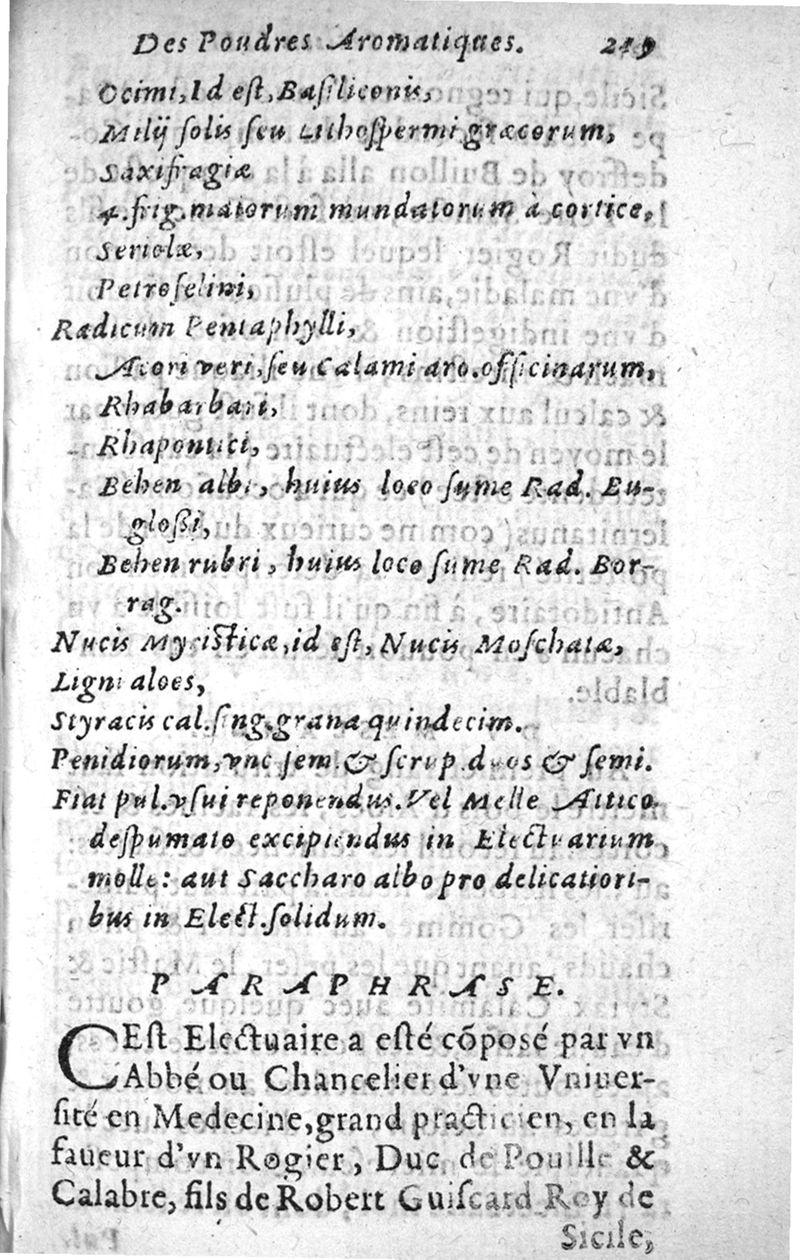 Des Poudres Aromatiques. 249
Ocimi, Id est, Basiliconis,
Milij solis seu Lithospermi græcorum,
Saxifragiæ
4. frig. maiorum mundatorum a cortice,
Seriolæ,
Petroselini,
Radicum Pentaphylli,
Acori veri, seu Calami aro. officinarum,
Rhabarbari,
Rhapontici,
Behen albi, huius loco sume Rad. Eu-
glossi,
Behen rubri, huius loco sume Rad. Bor-
rag.
Nucis Myristicæ, id est, Nucis Moschatæ,
Ligni aloes,
Styracis cal. sing. grana quindecim.
Penidiorum, vnc sem. & scrup. duos & semi.
Fiat pul. vsui reponendus. Vel Melle Attico
despumato excipiendus in Electuarium
molle: aut Saccharo albo pro delicatiori-
bus in Elect. solidum.
PARAPHRASE.
CEst Electuaire a esté cõposé par vn
Abbé ou Chancelier d'vne Vniuer-
sité en Medecine, grand practicien, en la
faueur d'vn Rogier, Duc de Pouille &
Calabre, fils de Robert Guiscard Roy de
Sicile,